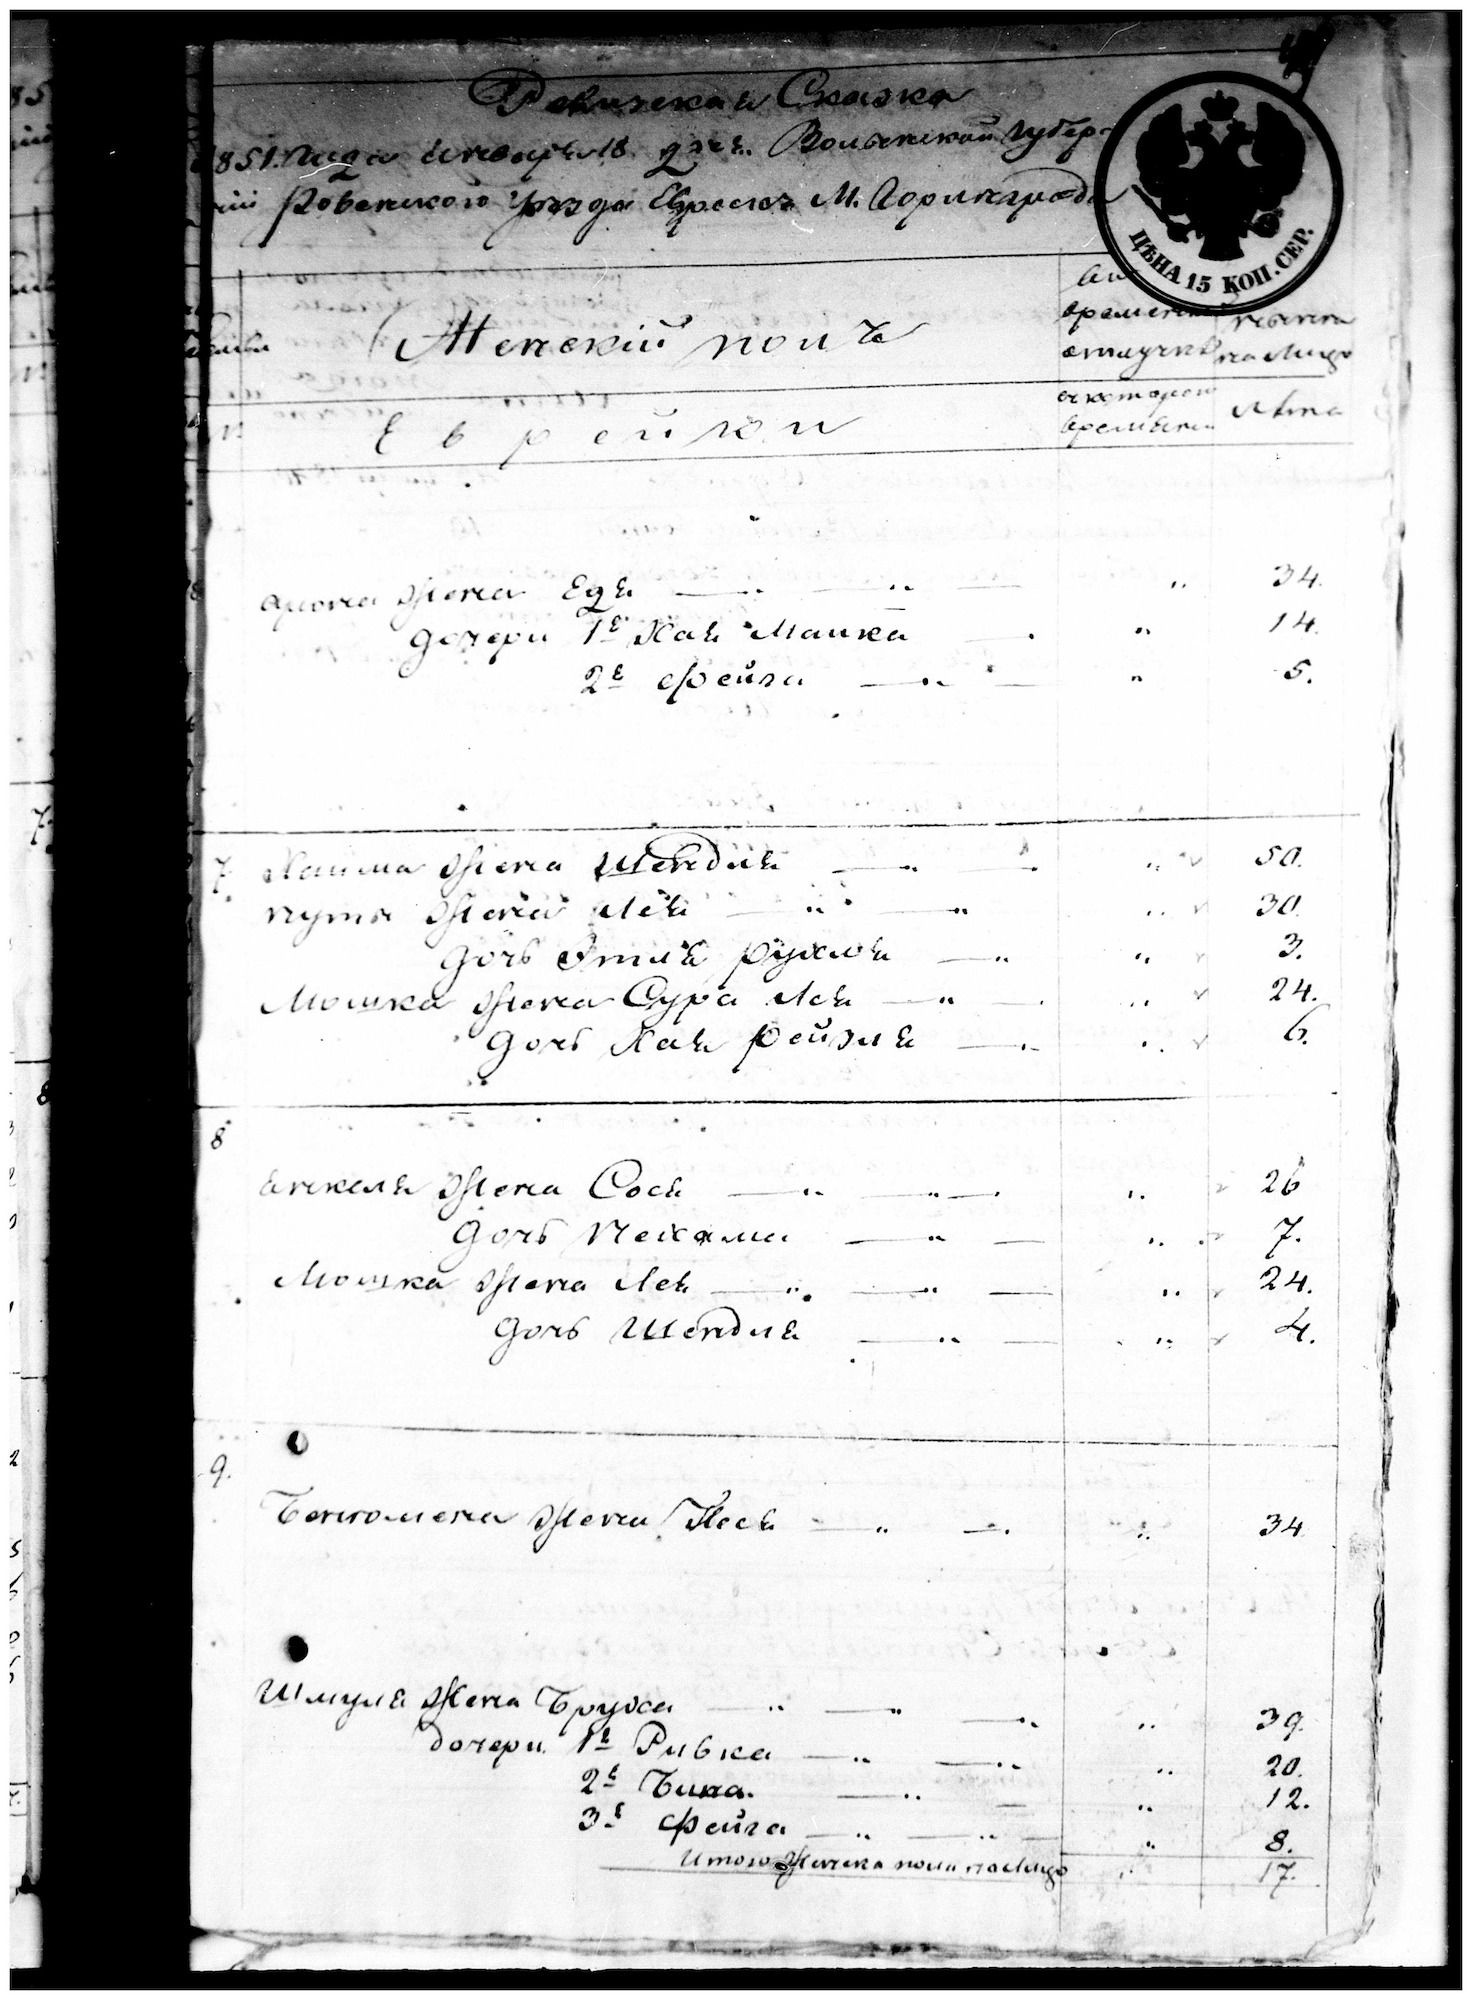 Ревизская Сказка
1851 года января 18 дня Волынской Губер-
ніи Ровенского Уезда Евреевъ М. Горинграда
ЦѢНА 15 КОП. СЕР.
Женскій полъ
Во временной отлучкѣ
Нынѣ на лицо
Еврейки
съ котораго времени
Лѣта
жена Едя — " — " — " 34.
дочери 1я Хая Малка — " 14.
2я Фейга — " — " 5.
7. Хаима жена Шендля — " — " 50.
жена Лея — " — " " 30.
дочь Этля Рухля — " " 3.
Мошка жена Сура Лея — " — " 24.
дочь Хая Рейзля — " " 6.
8
Янкеля жена Сося — " " — " 26
дочь Нехама — " — " 7.
Мошка жена Лея — " — " — " 24.
дочь Шендля — " — " 4.
9.
Бенюмена жена Песя — " — " 34
Шмуля жена Бруха — " — " — " 39.
дочери 1я Ривка — " — " " 20.
2я Бина — " — " 12.
3я Фейга — " — " — " 8.
Итого женска пола на лицо " 17.